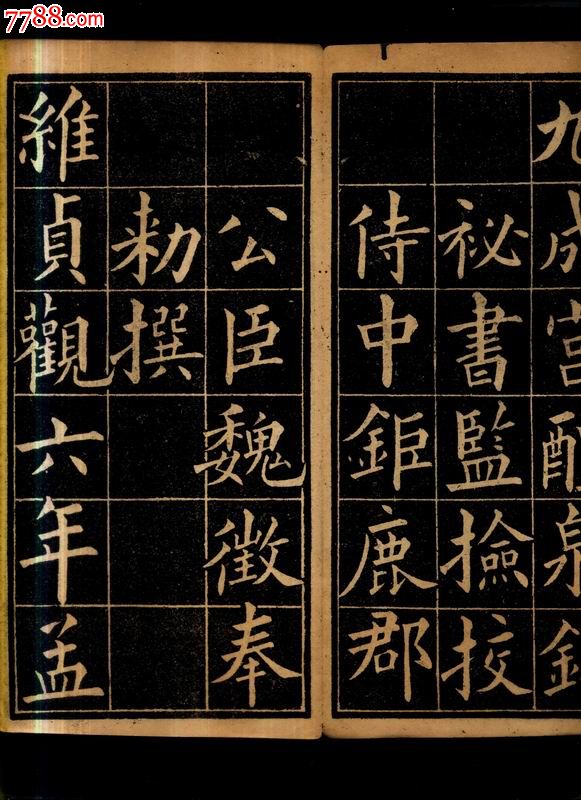 7788.com
中国收藏热线
九成宮醴泉銘
秘書監撿挍
侍中鉅鹿郡
公臣魏徵奉
勑撰
維貞觀六年孟